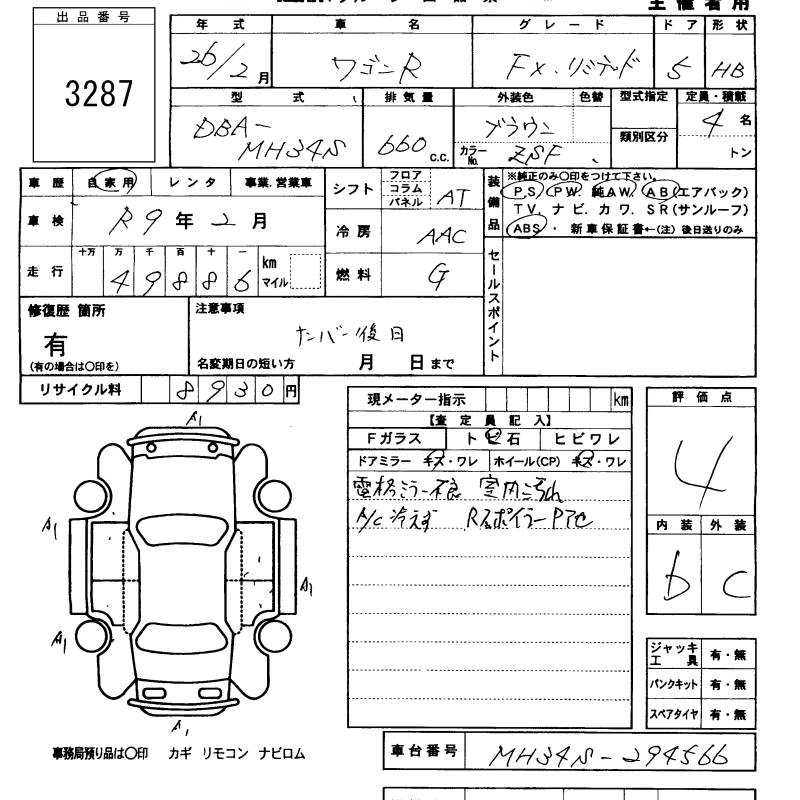 主催者用
出品番号
3287
年式 車名 グレード ドア 形状
26/2月 ワゴンR FX.リミテッド 5 HB
型式 排気量 外装色 色替 型式指定 定員・積載
類別区分
DBA-MH34S 660c.c. ブラウン カラーNo. ZSF 4名
トン
車歴 自家用 レンタ 事業.営業車
車検 R9年2月
走行 十万 万 千 百 十 一
49886 km マイル
シフト フロア コラム パネル AT
冷房 AAC
燃料 G
装備品 ※純正のみ○印をつけて下さい。
PS PW 純AW. AB(エアバック)
TV. ナビ. カワ. SR(サンルーフ)
ABS ・ 新車保証書←(注) 後日送りのみ
セールスポイント
修復歴 箇所
有
(有の場合は○印を)
注意事項
ナンバー後日
名変期日の短い方 月 日まで
リサイクル料 8930円
現メーター指示 km
【査定員記入】
Fガラス トビ石 ヒビワレ
ドアミラー キズ・ワレ ホイール(CP) キズ・ワレ
電格ミラー不良 室内汚れ
A/C冷えず RスポイラーPアセ
評価点
4
内装 外装
b c
A1
A1
A1
A1
A1
ジャッキ工具 有・無
パンクキット 有・無
スペアタイヤ 有・無
事務局預り品は○印 カギ リモコン ナビロム
車台番号 MH34S-294566